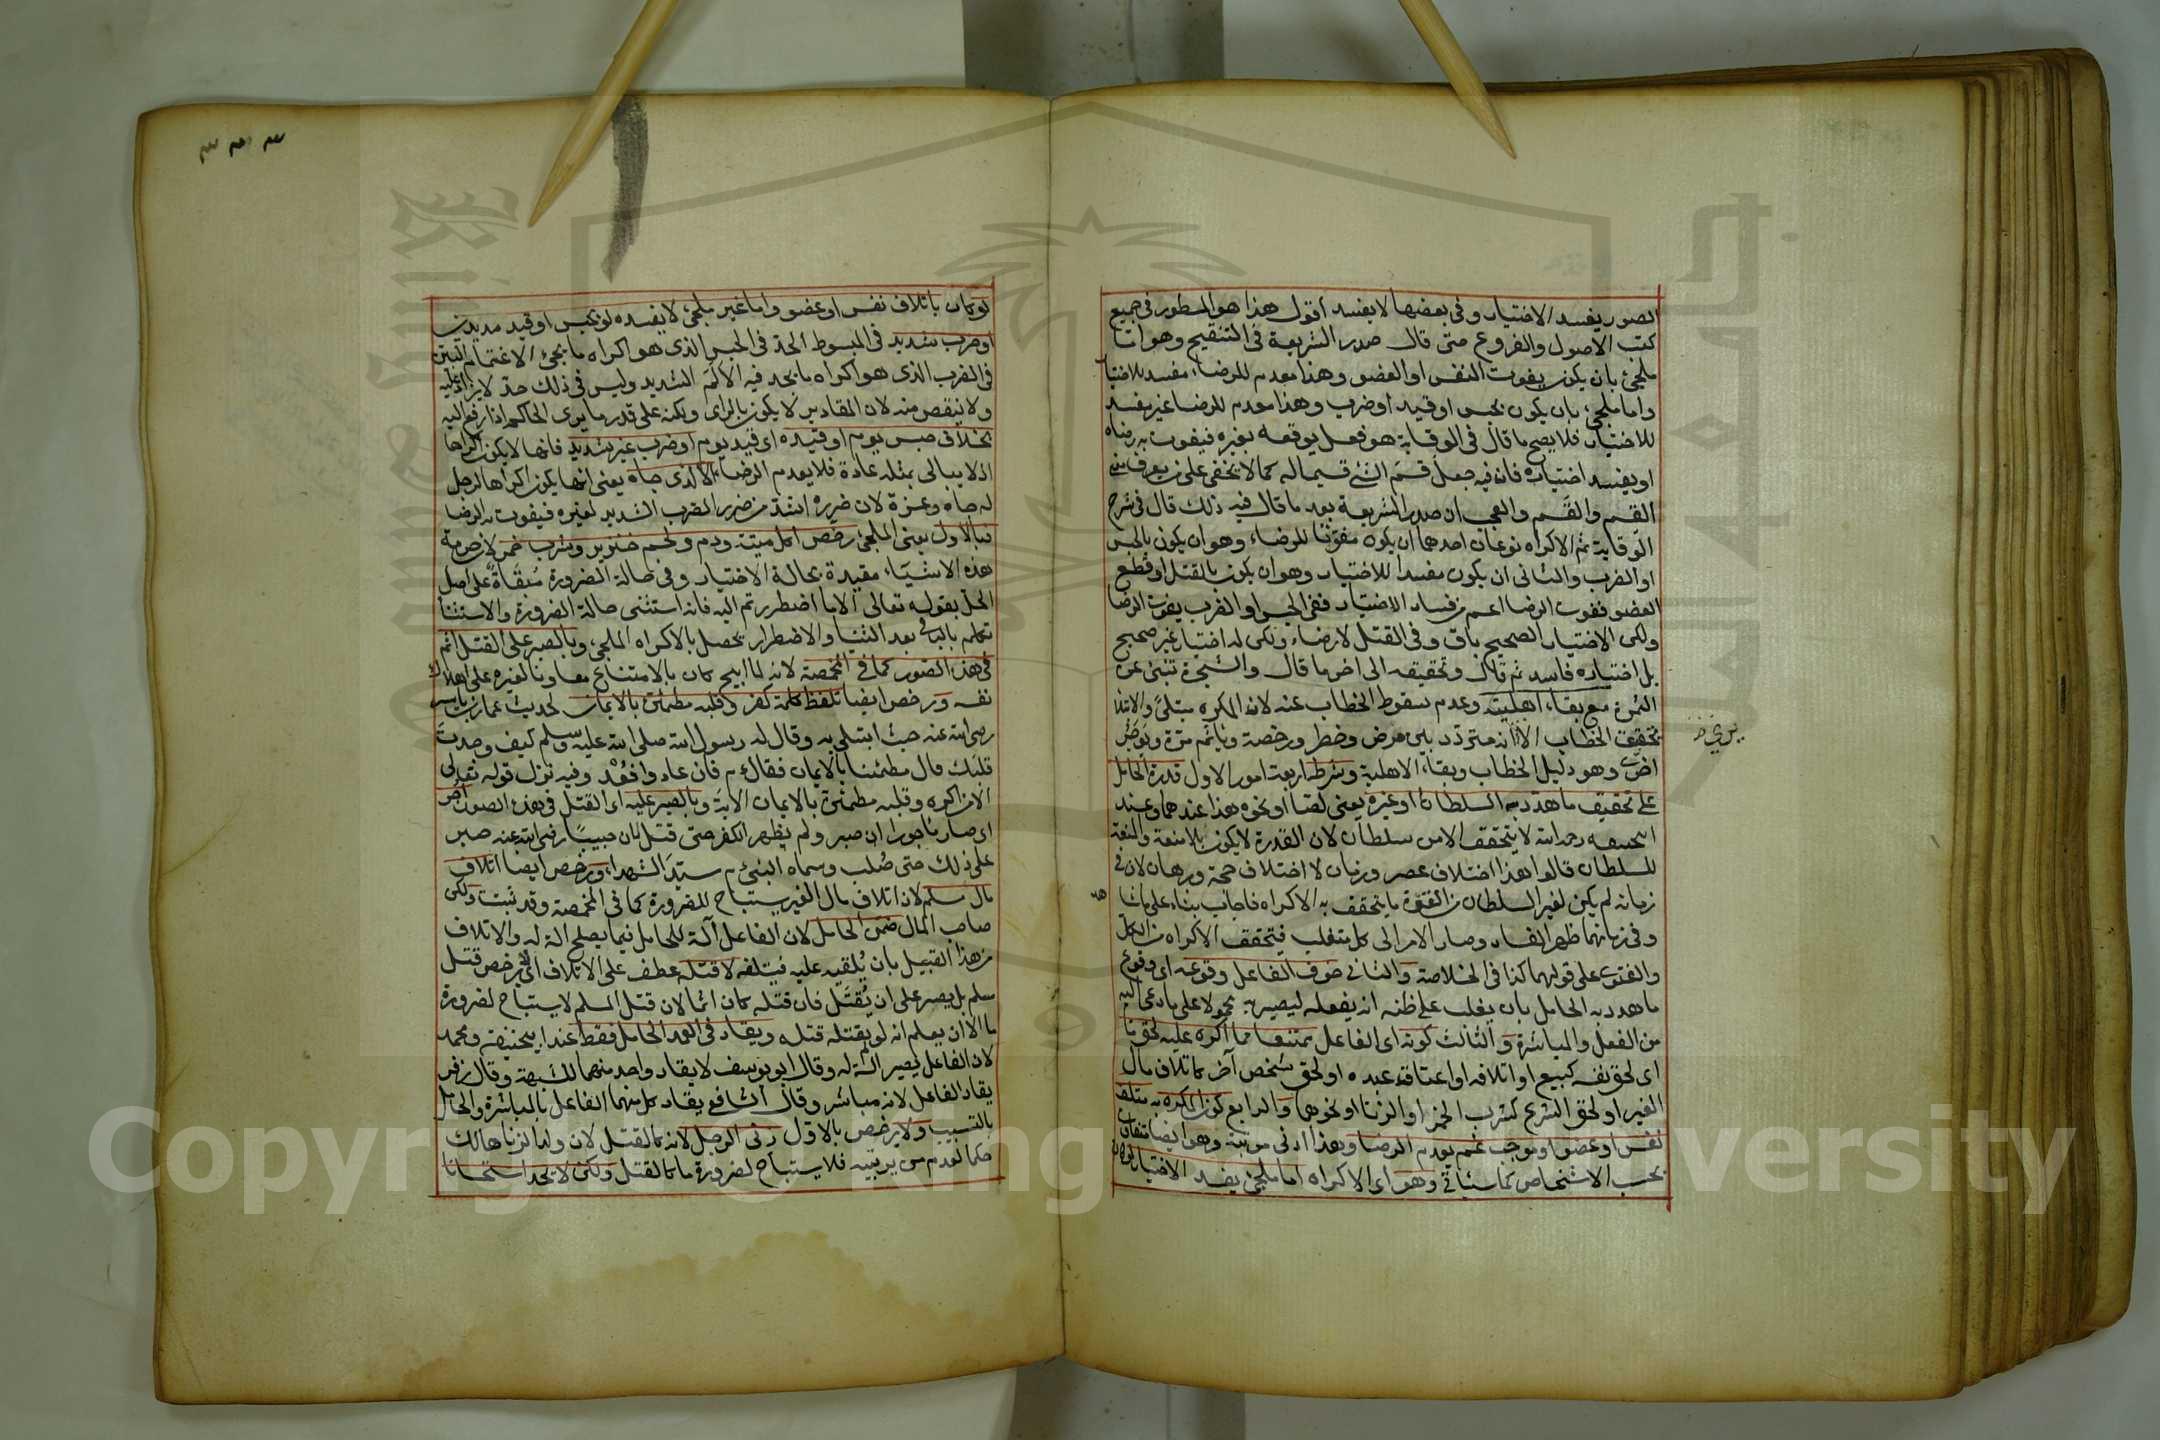 الصور يفسد الاختيار وفي بعضها لا يفسد اقول هذا هو المسطور في جميع
كتب الاصول والفروع حتى قال صدر الشريعة في التنقيح وهو اما
ملجئ بان يكون بفوت النفس او العضو وهذا معدم للرضاء مفسد للاختيار
واما ملجئ بان يكون بحبس او قيد او ضرب وهذا معدم للرضا غير مفسد
للاختيار فلا يصح ما قال في الوقاية هو فعل يوقعه بغيره فيفوت به رضاه
او يفسد اختياره فانه فيه جعل قسم الشئ قسيما له كما لا يخفى على من يعرف معنى
القسم والقسم والعجب ان صدر الشريعة بعد ما قال فيه ذلك قال في شرح
الوقاية ثم الاكراه نوعان احدهما ان يكون مفوتا للرضاء وهو ان يكون بالحبس
او الضرب والثاني ان يكون مفسدا للاختيار وهو ان يكون بالقتل او قطع
العضو ففوت الرضا اعم من فساد الاختيار ففي الحبس او الضرب يفوت الرضا
ولكن الاختيار الصحيح باق وفي القتل لا رضاء ولكن له اختيار غير صحيح
بل اختياره فاسد ثم قال وتحقيقه الى اخر ما قال والشجرة تنبئ عن
الثمرة مع بقاء اهليته وعدم سقوط الخطاب عنه لان المكره مبتلى والابتلاء
تحقيق الخطاب الا انه متردد بين فرض وحظر ورخصة وياثم مرة ويؤجر
اخرى وهو دليل الخطاب وبقاء الاهلية وشرطه اربعة امور الاول قدرة الحامل
على تحقيق ما هدد به السلطانا او غيره يعني لصا او نحوه هذا عندهما وعند
ابي حنيفه رحمه الله لا يتحقق الا من سلطان لان القدرة لا يكون بلا منعة والمنعة
للسلطان قالوا هذا اختلاف عصر وزمان لا اختلاف حجة وبرهان لان في
زمانه لم يكن لغير السلطان من القوة ما يتحقق به الاكراه فاجاب بناء على ما شاهد
وفي زمانهما ظهر الفساد وصار الامر الى كل متغلب فيتحقق الاكراه من الكل
والفتوى على قولهما كذا في الخلاصة والثاني خوف الفاعل وقوعه اي وقوع
ما هدد به الحامل بان يغلب على ظنه انه يفعله ليصير به محمولا على ما دعى اليه
من الفعل والمباشرة والثالث كونه اى الفاعل ممتنعا عما اكره عليه لحق ما
اى لحق نفسه كبيع او اتلافه او اعتاقه عبده او لحق شخص آخر كاتلاف مال
الغير او لحق الشرع كشرب الخمر او الزنا او نحوهما والرابع كون المكره به متلفا
نفسا او عضوا او موجب غم يعدم الرضا وهذا ادنى مرتبة وهو ايضا متفاوت
بحسب الاشخاص كما سيأتى وهو اى الاكراه اما ملجئ يفسد الاختيار لو كان
٣٣٣
لو كان باتلاف نفس او عضو واما غير ملجئ لا يفسده لو بحبس او قيد مديدين
او ضرب شديد في المبسوط الحد في الحبس الذى هو اكراه ما يجئ الاغتمام البين
في الضرب الذى هو اكراه ما يجد فيه الالم الشديد وليس في ذلك حد لا يزاد عليه
ولا ينقص منه لان المقادير لا يكون بالراى ولكنه على قدر ما يرى الحاكم اذا رفع اليه
بخلاف حبس يوم او قيده اى قيد يوم او ضرب غير شديد فانها لا يكون اكراها
اذ لا يبالى بمثله عادة فلا يعدم الرضاء الا لذى جاه يعنى انها يكون اكراها لرجل
له جاه وعزة لان ضرره اشد من ضرر الضرب الشديد لغيره فيفوت به الرضا
فبالاول يعنى الملجئ رخص اكل ميتة ودم ولحم خنزير وشرب خمر لان حرمة
هذه الاشياء مقيدة بحالة الاختيار وفي حالة الضرورة مبقاة على اصل
الحل بقوله تعالى الا ما اضطررتم اليه فانه استثنى حالة الضرورة والاستثنا
تكلم بالباقى بعد الثنيا والاضطرار يحصل بالاكراه الملجئ وبالصبر على القتل اثم
في هذه الصور كما في المخمصة لانه لما ابيح كان بالامتناع معاونا لغيره على اهلاك
نفسه ورخص ايضا تلفظ كلمة كفر وقلبه مطمئن بالايمان لحديث عمار بن ياسر
رضى الله عنه حيث ابتلى به وقال له رسول الله صلى الله عليه وسلم كيف وجدت
قلبك قال مطمئنا بالايمان فقال م فان عادوا فعد وفيه نزل قوله تعالى
الا من اكره وقلبه مطمئن بالايمان الاية وبالصبر عليه اى القتل في هذه الصور اجر
اى صار ماجورا ان صبر ولم يظهر الكفر حتى قتل لان خبيبا رضى الله عنه صبر
على ذلك حتى صلب وسماه النبى م سيد الشهداء ورخص ايضا اتلاف
مال مسلم لان اتلاف مال الغير يستباح للضرورة كما في المخمصة وقد ثبتت ولكن
صاحب المال ضمن الحامل لان الفاعل آلة للحامل فيما يصلح آلة له والاتلاف
من هذا القبيل بان يلقيه عليه فيتلفه لا قتله عطف على الاتلاف اى لم يرخص قتل
مسلم بل يصبر على ان يقتل فان قتله كان اثما لان قتل المسلم لا يستباح لضرورة
ما الا ان يعلم انه لو لم يقتله قتله ويقاد في العمد الحامل فقط عند ابى حنيفة ومحمد
لان الفاعل يصير آلة له وقال ابو يوسف لا يقاد واحد منهما للشبهة وقال زفر
يقاد الفاعل لانه مباشر وقال الشافعى يقاد كل منهما الفاعل بالمباشرة والحامل
بالتسبيب ولا يرخص بالاول زنى الرجل لانه كالقتل لان ولد الزنا هالك
حكما لعدم من يربيه فلا يستباح لضرورة ما كالقتل ولكن لا يحد استحسانا
Copyright © King Saud University